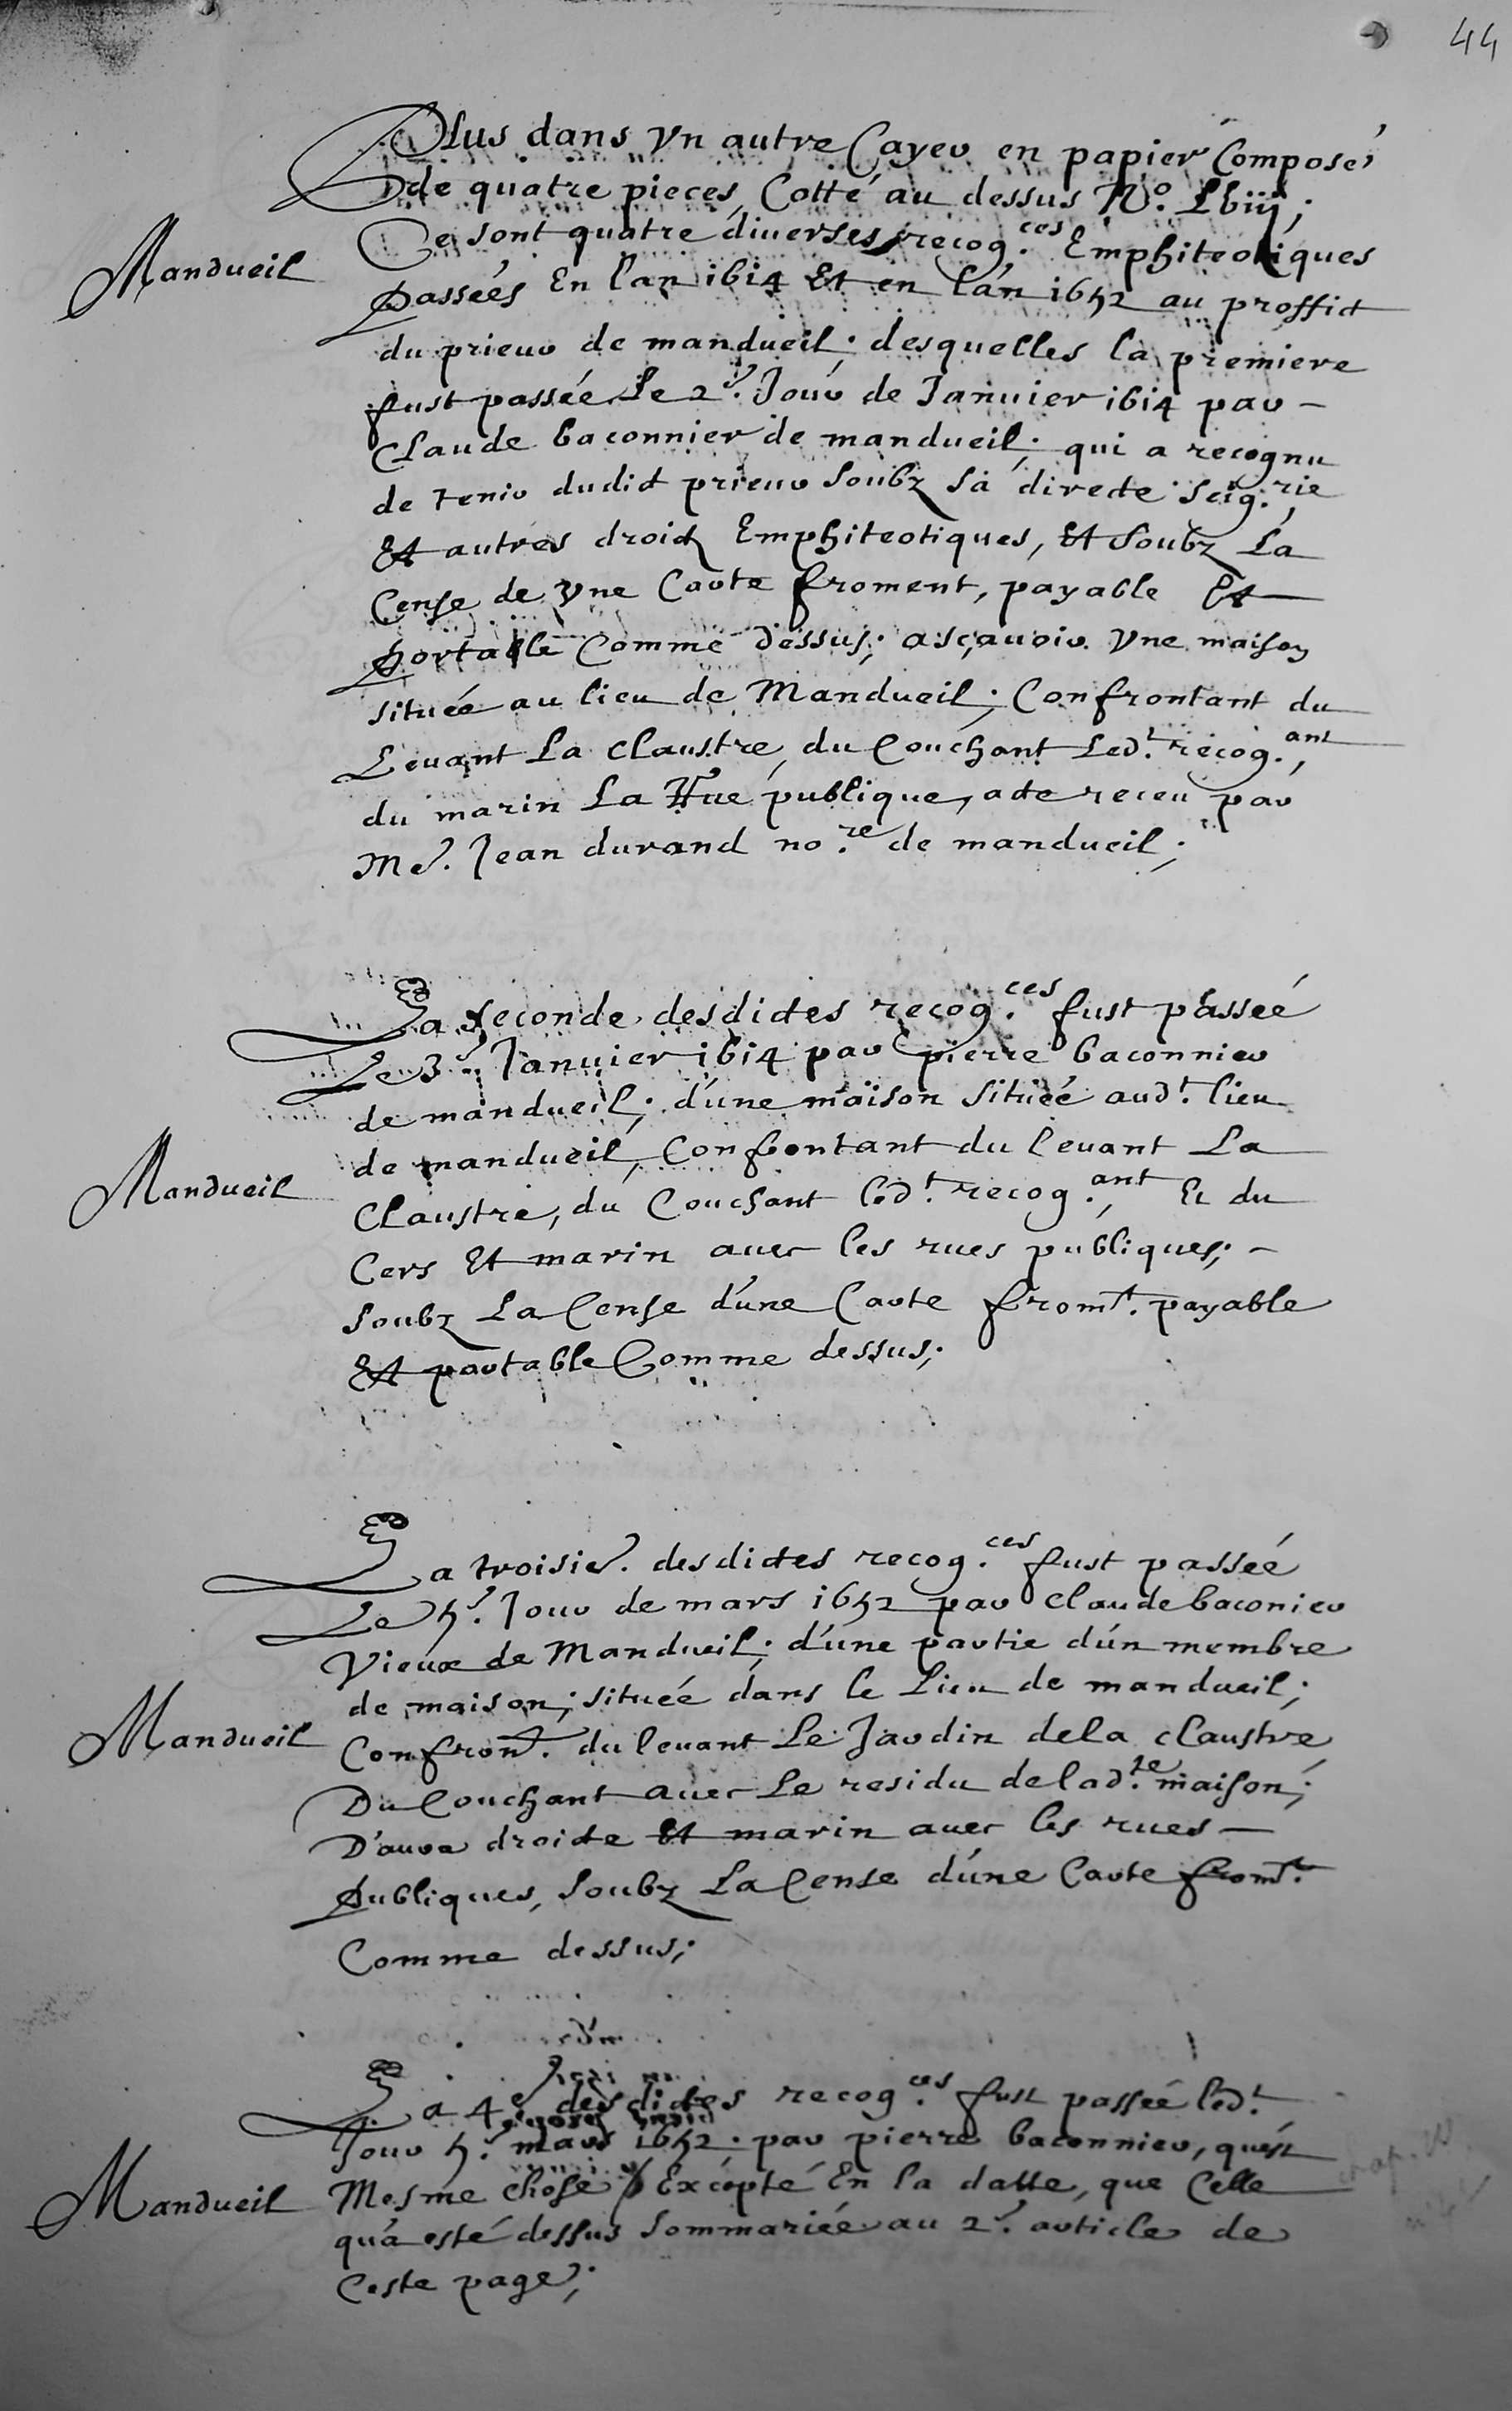 44
Plus dans vn autre Cayer en papier Composé
de quatre pieces, Cotté au dessus N.o Lbiij;
Ce sont quatre diuerses recog.ces Emphiteotiques
Mandueil
passées En l'an 1614 Et en l'an 1652 au proffict
du prieur de mandueil; desquelles la premiere
fust passée Le 2.e Jour de Januier 1614 par –
Claude baconnier de mandueil; qui a recognu
de tenir dudict prieur soubz sa directe seig.rie
Et autres droictz Emphiteotiques, Et soubz La
Cense de vne Carte froment, payable Et
portable Comme dessus; asçauoir vne maison
située au lieu de Mandueil; Confrontant du
Leuant La Claustre, du Couchant Led.t recog.ant,
du marin La Rue publique, acte receu par
Me. Jean durand no.re de mandueil;
La seconde desdictes recog.ces fust passeé
Le 3.e Januier 1614 par pierre baconnier
de mandueil; d'une maison située aud.t lieu
de mandueil, Confrontant du leuant La
Mandueil
Claustre, du Couchant led.t recog.ant, Et du
Cers Et marin auec les rues publiques; –
soubz La Cense d'une Carte from.t payable
Et portable Comme dessus;
La troisie. desdictes recog.ces fust passeé
Le 5.e Jour de mars 1652 par Claude baconier
Vieux de Mandueil; d'une partie d'un membre
de maison; située dans le Lieu de mandueil;
Mandueil
Confron.t du leuant Le Jardin de la claustre
Du Couchant auec Le residu de lad.te maison;
D'aura droicte Et marin auec les rues –
publiques, soubz La Cense d'une Carte from.t
Comme dessus;
La 4.e desdictes recog.ces fust passeé led.t
Jour 5.e mars 1652. par pierre baconnier, qu'est
Mandueil
Mesme chose Excepté En la datte, que Celle
qu'a esté dessus sommariée au 2.e article de
Ceste page;